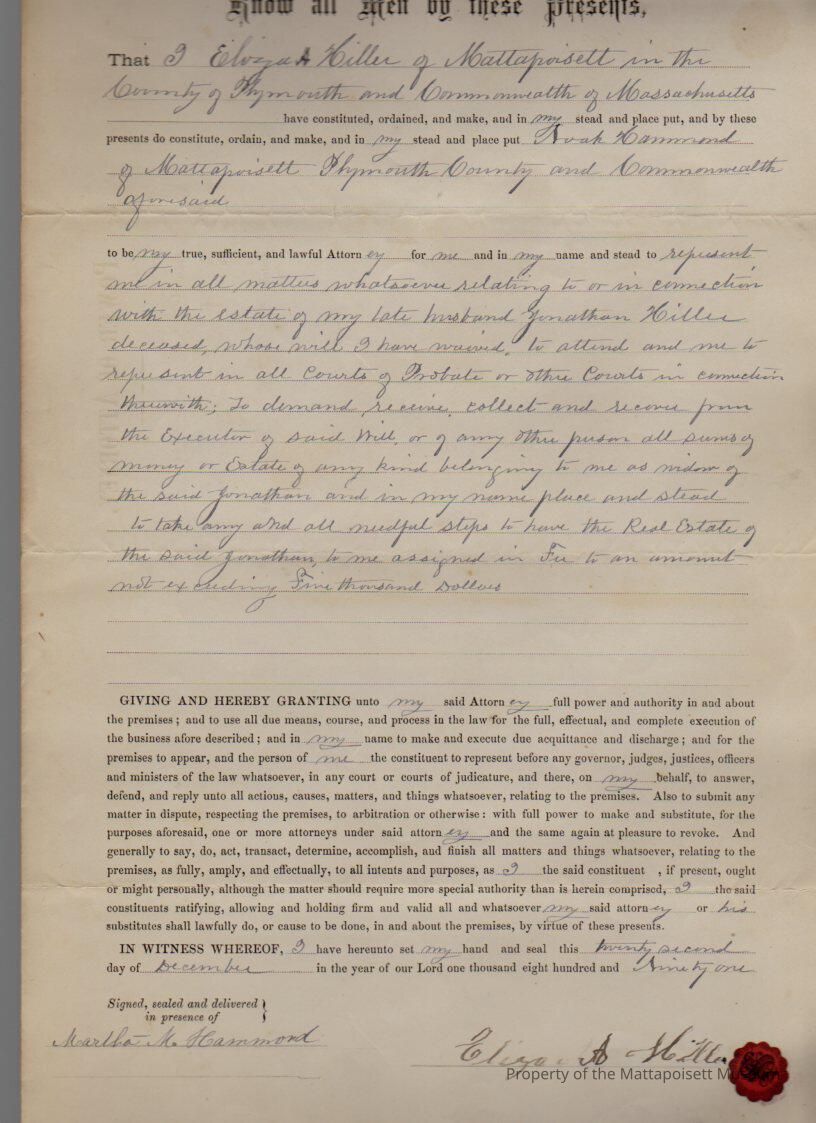 Know all Men by these Presents,
That I Eliza A Hiller of Mattapoisett in the
County of Plymouth and Commonwealth of Massachusetts
have constituted, ordained, and make, and in my stead and place put, and by these
presents do constitute, ordain, and make, and in my stead and place put Noah Hammond
of Mattapoisett Plymouth County and Commonwealth
aforesaid
to be my true, sufficient, and lawful Attorn ey for me and in my name and stead to represent
me in all matters whatsoever relating to or in connection
with the estate of my late husband Jonathan Hiller
deceased, whose will I have waived, to attend and me to
represent in all Courts of Probate or other Courts in connection
therewith; To demand, receive, collect and recover from
the Executor of said Will, or of any other person all sums of
money or Estate of any kind belonging to me as widow of
the said Jonathan and in my name place and stead
to take any and all needful steps to have the Real Estate of
the said Jonathan, to me assigned in Fee to an amount
not exceeding Five thousand Dollars
GIVING AND HEREBY GRANTING unto my said Attorn ey full power and authority in and about
the premises; and to use all due means, course, and process in the law for the full, effectual, and complete execution of
the business afore described; and in my name to make and execute due acquittance and discharge; and for the
premises to appear, and the person of me the constituent to represent before any governor, judges, justices, officers
and ministers of the law whatsoever, in any court or courts of judicature, and there, on my behalf, to answer,
defend, and reply unto all actions, causes, matters, and things whatsoever, relating to the premises. Also to submit any
matter in dispute, respecting the premises, to arbitration or otherwise: with full power to make and substitute, for the
purposes aforesaid, one or more attorneys under said attorn ey and the same again at pleasure to revoke. And
generally to say, do, act, transact, determine, accomplish, and finish all matters and things whatsoever, relating to the
premises, as fully, amply, and effectually, to all intents and purposes, as I the said constituent , if present, ought
or might personally, although the matter should require more special authority than is herein comprised, I the said
constituents ratifying, allowing and holding firm and valid all and whatsoever my said attorn ey or his
substitutes shall lawfully do, or cause to be done, in and about the premises, by virtue of these presents.
IN WITNESS WHEREOF, I have hereunto set my hand and seal this twenty second
day of December in the year of our Lord one thousand eight hundred and Ninety one
Signed, sealed and delivered
in presence of
Martha M. Hammond
Eliza A Hiller
Property of the Mattapoisett Museum